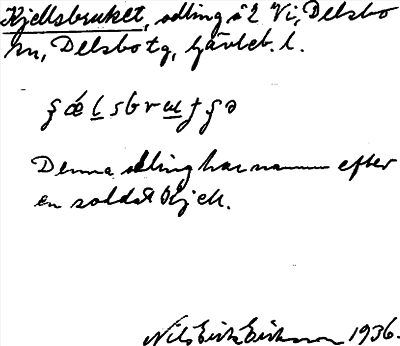 Kjellsbruket, odling å 2 Vi, Delsbo
sn, Delsbo tg, Gävleb. l.
Denna odling har namn efter
en soldat Kjell.
Nils Erik Eriksson 1936.